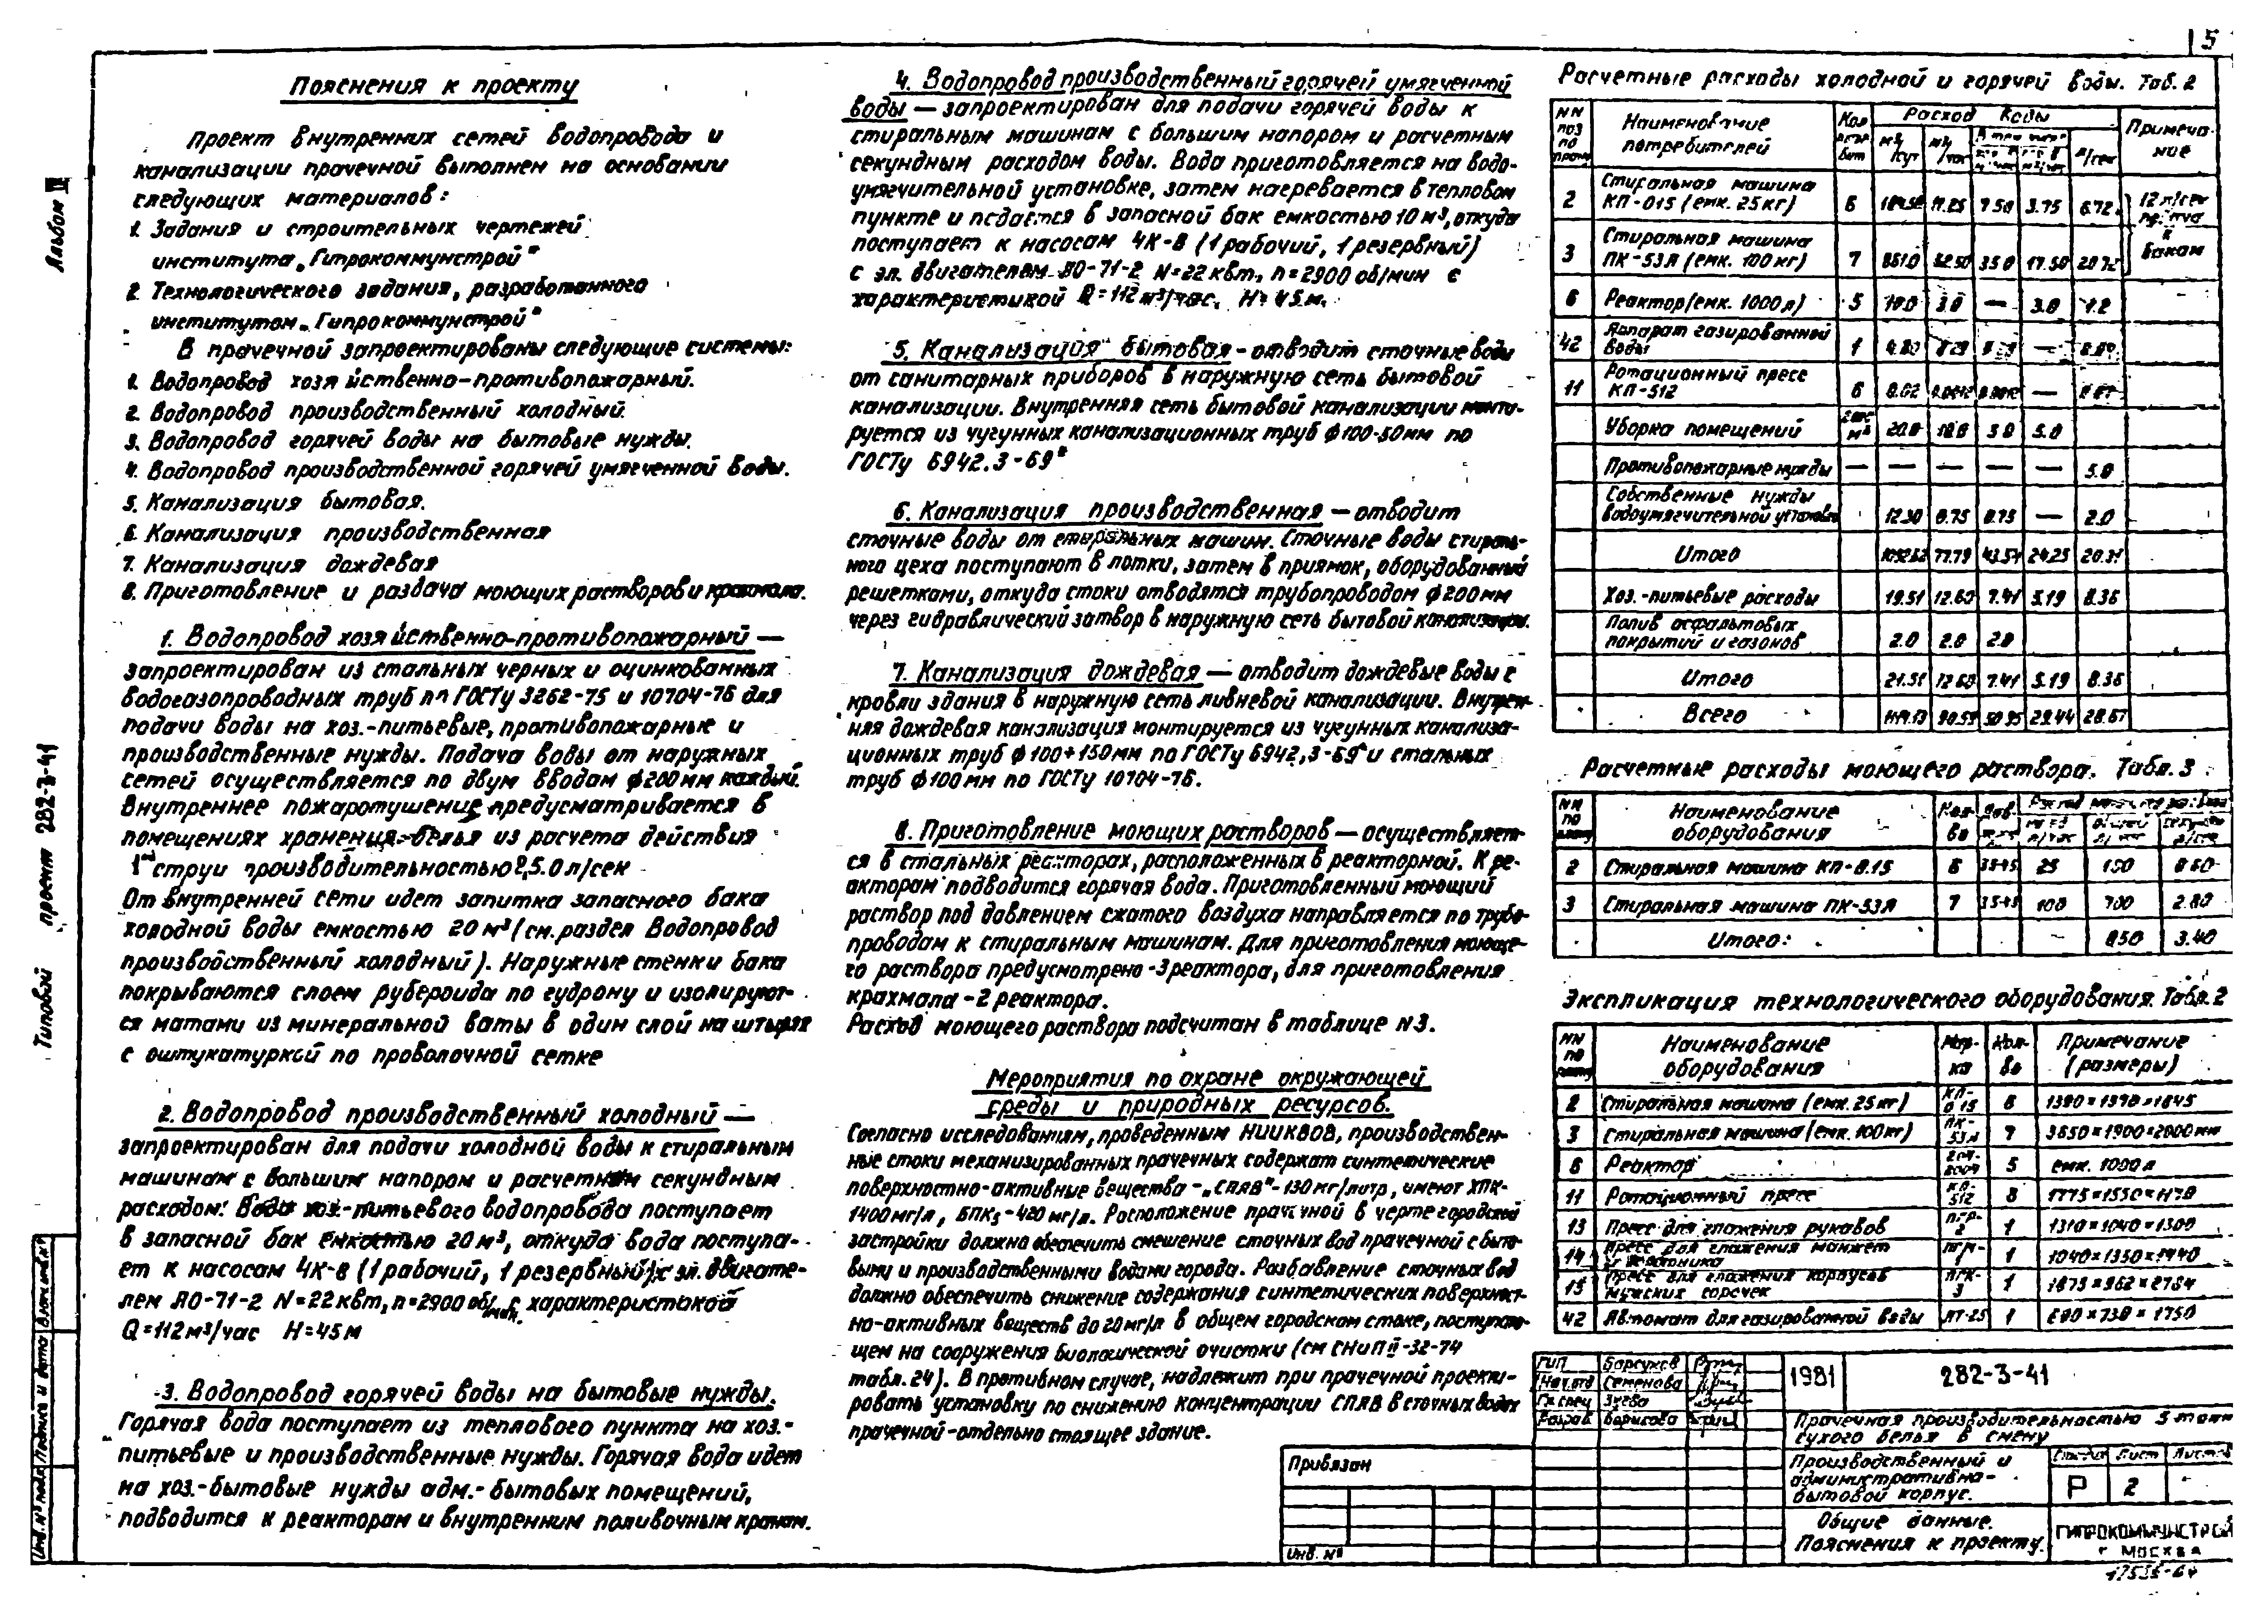 5
Альбом III
Типовой проект 282-3-41
Пояснения к проекту
Проект внутренних сетей водопровода и
канализации прачечной выполнен на основании
следующих материалов:
1. Задания и строительных чертежей
института „Гипрокоммунстрой"
2. Технологического задания, разработанного
институтом „Гипрокоммунстрой"
В прачечной запроектированы следующие системы:
1. Водопровод хозяйственно-противопожарный.
2. Водопровод производственный холодный.
3. Водопровод горячей воды на бытовые нужды.
4. Водопровод производственной горячей умягченной воды.
5. Канализация бытовая.
6. Канализация производственная
7. Канализация дождевая
8. Приготовление и раздача моющих растворов и крахмала.
1. Водопровод хозяйственно-противопожарный —
запроектирован из стальных черных и оцинкованных
водогазопроводных труб по ГОСТу 3262-75 и 10704-76 для
подачи воды на хоз.-питьевые, противопожарные и
производственные нужды. Подача воды от наружных
сетей осуществляется по двум вводам ϕ200мм каждый.
Внутреннее пожаротушение предусматривается в
помещениях хранения белья из расчета действия
струи производительностью л/сек
От внутренней сети идет запитка запасного бака
холодной воды емкостью 20 м³ (см. раздел Водопровод
производственный холодный). Наружные стенки бака
покрываются слоем рубероида по гудрону и изолируют-
ся матами из минеральной ваты в один слой на штырях
с оштукатуркой по проволочной сетке
2. Водопровод производственный холодный —
запроектирован для подачи холодной воды к стиральным
машинам с большим напором и расчетным секундным
расходом. Вода хоз.-питьевого водопровода поступает
в запасной бак емкостью 20 м³, откуда вода поступа-
ет к насосам 4К-8 (1 рабочий, 1 резервный) с эл. двигате-
лем АО-71-2 N=22 квт, n=2900 об/мин. с характеристикой
Q=112 м³/час H=45м
3. Водопровод горячей воды на бытовые нужды.
Горячая вода поступает из теплового пункта на хоз.-
питьевые и производственные нужды. Горячая вода идет
на хоз.-бытовые нужды адм.-бытовых помещений,
подводится к реакторам и внутренним поливочным кранам.
4. Водопровод производственный горячей умягченной
воды — запроектирован для подачи горячей воды к
стиральным машинам с большим напором и расчетным
секундным расходом воды. Вода приготовляется на водо-
умягчительной установке, затем нагревается в тепловом
пункте и подается в запасной бак емкостью 10 м³, откуда
поступает к насосам 4К-8 (1 рабочий, 1 резервный)
с эл. двигателем АО-71-2 N=22 квт, n=2900 об/мин с
характеристикой Q=112 м³/час. H=45м.
5. Канализация бытовая - отводит сточные воды
от санитарных приборов в наружную сеть бытовой
канализации. Внутренняя сеть бытовой канализации монти-
руется из чугунных канализационных труб ϕ100-50мм по
ГОСТу 6942.3-69*
6. Канализация производственная — отводит
сточные воды от стиральных машин. Сточные воды стираль-
ного цеха поступают в лотки, затем в приямок, оборудованный
решетками, откуда стоки отводятся трубопроводом ϕ200мм
через гидравлический затвор в наружную сеть бытовой канализации.
7. Канализация дождевая — отводит дождевые воды с
кровли здания в наружную сеть ливневой канализации. Внутрен-
няя дождевая канализация монтируется из чугунных канализа-
ционных труб ϕ100÷150мм по ГОСТу 6942.3-69* и стальных
труб ϕ100мм по ГОСТу 10704-76.
8. Приготовление моющих растворов — осуществляет-
ся в стальных реакторах, расположенных в реакторной. К ре-
акторам подводится горячая вода. Приготовленный моющий
раствор под давлением сжатого воздуха направляется по трубо-
проводам к стиральным машинам. Для приготовления моюще-
го раствора предусмотрено - 3 реактора, для приготовления
крахмала - 2 реактора.
Расход моющего раствора подсчитан в таблице N3.
Мероприятия по охране окружающей
среды и природных ресурсов.
Согласно исследованиям, проведенным НИИКВОВ, производствен-
ные стоки механизированных прачечных содержат синтетические
поверхностно-активные вещества - „СПАВ" - 130 мг/литр, имеют ХПК-
1400 мг/л, БПК₅ - 420 мг/л. Расположение прачечной в черте городской
застройки должно обеспечить смешение сточных вод прачечной с быто-
выми и производственными водами города. Разбавление сточных вод
должно обеспечить снижение содержания синтетических поверхност-
но-активных веществ до 20 мг/л в общем городском стоке, поступаю-
щем на сооружения биологической очистки (см СНиП II-32-74
табл. 24). В противном случае, надлежит при прачечной проекти-
ровать установку по снижению концентрации СПАВ в сточных водах
прачечной - отдельно стоящее здание.
Расчетные расходы холодной и горячей воды. Таб. 2
NN поз по Наименование потребителей Кол Расход воды Примеча-ние
м³/сут м³/час л/сек
2 Стиральная машина КП-015 (емк. 25кг) 6 11.25 7.50 3.75 6.72 12 л/сек
3 Стиральная машина ПК-53А (емк. 100кг) 7 52.50 35.0 17.50 бакам
6 Реактор (емк. 1000л) 5 10.0 3.0 — 3.0 1.2
42 Аппарат газированной воды 1 —
11 Ротационный пресс КП-512 6 0.02 —
Уборка помещений м² 20.0 10.0 5.0 5.0
Противопожарные нужды — — — — 5.0
Собственные нужды водоумягчительной установки 12.30 0.75 0.75 — 2.0
Итого 77.79 43.54 24.25
Хоз.-питьевые расходы 19.51 12.60 7.41 5.19 8.36
Полив асфальтовых покрытий и газонов 2.0 2.0 2.0
Итого 21.51 12.60 7.41 5.19 8.36
Всего 90.59 50.95 29.44 28.67
Расчетные расходы моющего раствора. Табл. 3
NN по Наименование оборудования Кол-во
2 Стиральная машина КП-0.15 6 25 150 0.60
3 Стиральная машина ПК-53А 7 100 700 2.80
Итого: 850 3.40
Экспликация технологического оборудования. Табл. 2
NN по Наименование оборудования Мар-ка Кол-во Примечание (размеры)
2 Стиральная машина (емк. 25кг) КП-015 6
3 Стиральная машина (емк. 100кг) ПК-53А 7 3650×1900×2000 мм
6 Реактор 5 емк. 1000л
11 Ротационный пресс КП-512 8
13 Пресс для глажения рукавов 1 1310×1040×1300
14 Пресс для глажения манжет 1 1040×1350×1440
15 Пресс для глажения корпусов мужских сорочек 1
42 Автомат для газированной воды АТ-25 1
ГИП Барсуков
Нач.отд Семенова
Гл.спец Зуева
Разраб Борисова
1981 282-3-41
Прачечная производительностью 5 тонн
сухого белья в смену
Производственный и
административно-
бытовой корпус.
Стадия Лист Листов
Р 2
Общие данные.
Пояснения к проекту.
ГИПРОКОММУНСТРОЙ
г МОСКВА
Привязан
Инв. №
Инв. № подл. Подпись и дата Взам. инв. №